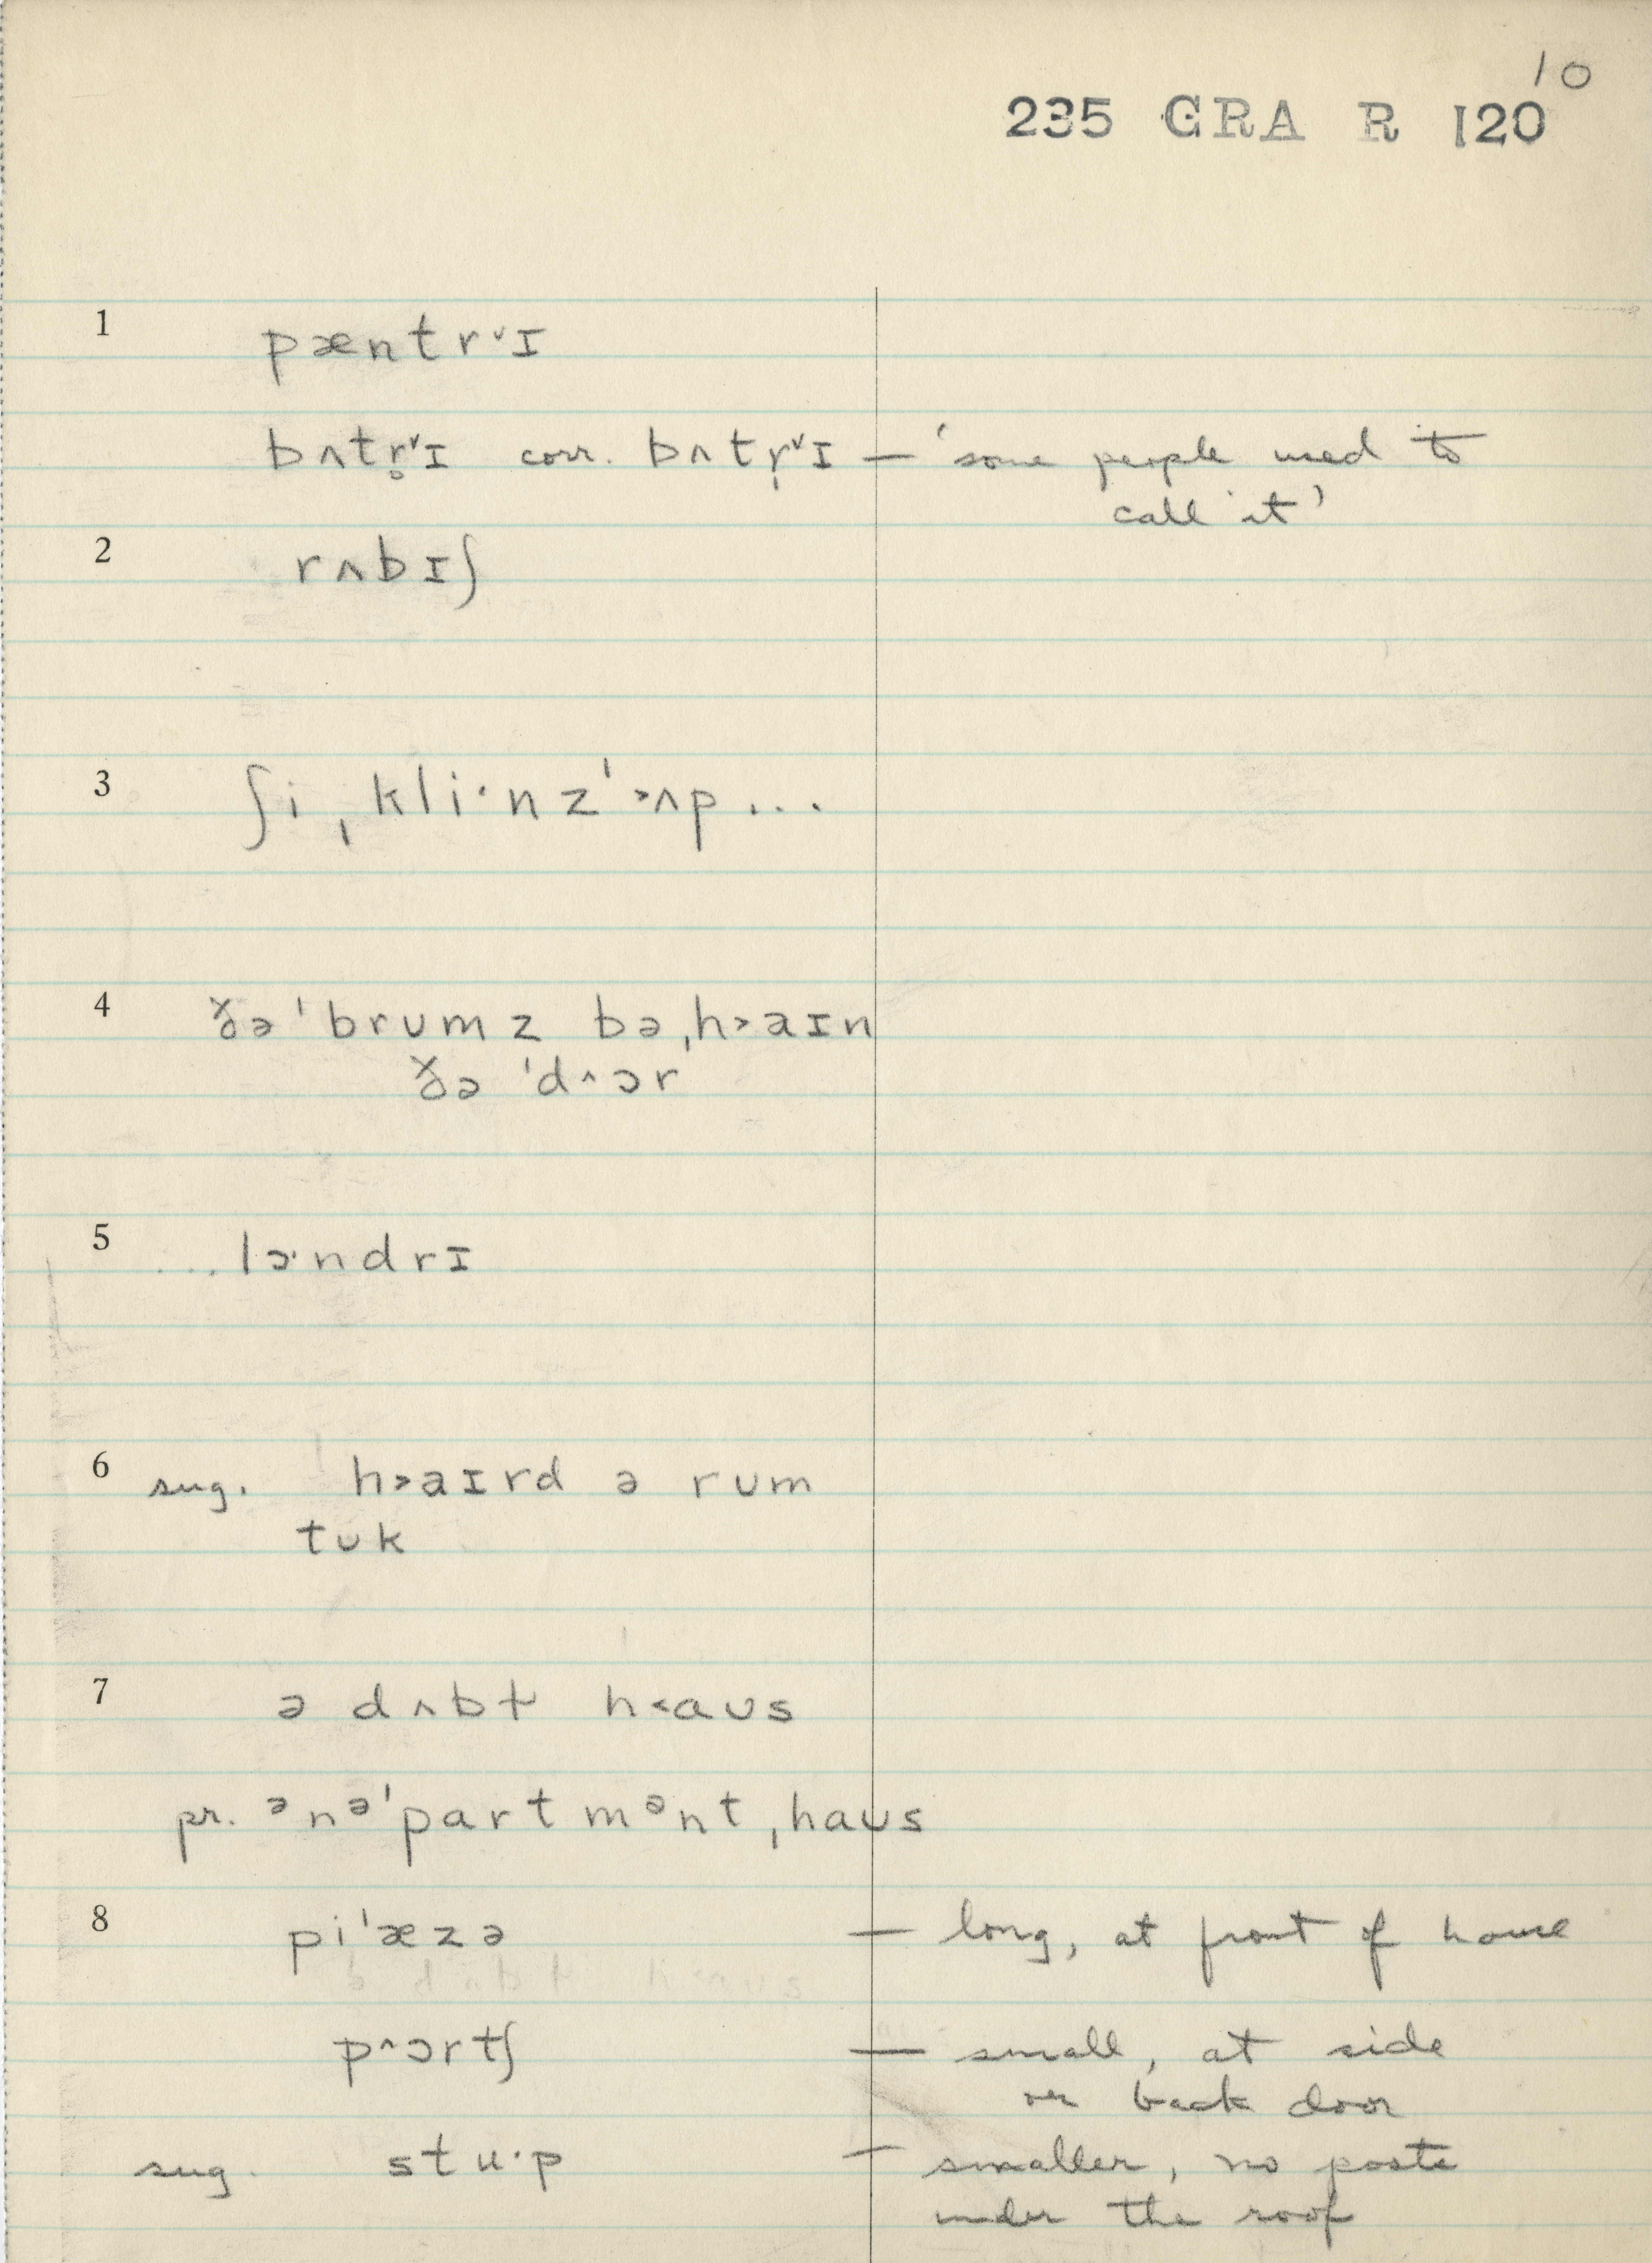 10
235 GRA R 120
1 pæntr˅ɪ
bʌtr̥˅ɪ corr. bʌtr̩˅ɪ — 'some people used to
call it'
2 rʌbɪʃ
3 ʃi ˌkli·nz'˃ʌp...
4 ðə 'brumz bəˌh˃aɪn
ðə 'd^ɔr
5 ...lɔ·ndrɪ
6 sug. h˃aɪrd ə rum
tʊk
7 ə dʌbɫ h˂aʊs
pr. ᵊnᵊ'partmᵊntˌhaʊs
8 pi'æzə — long, at front of house
p^ɔrtʃ — small, at side
or back door
sug. stu·p — smaller, no posts
under the roof